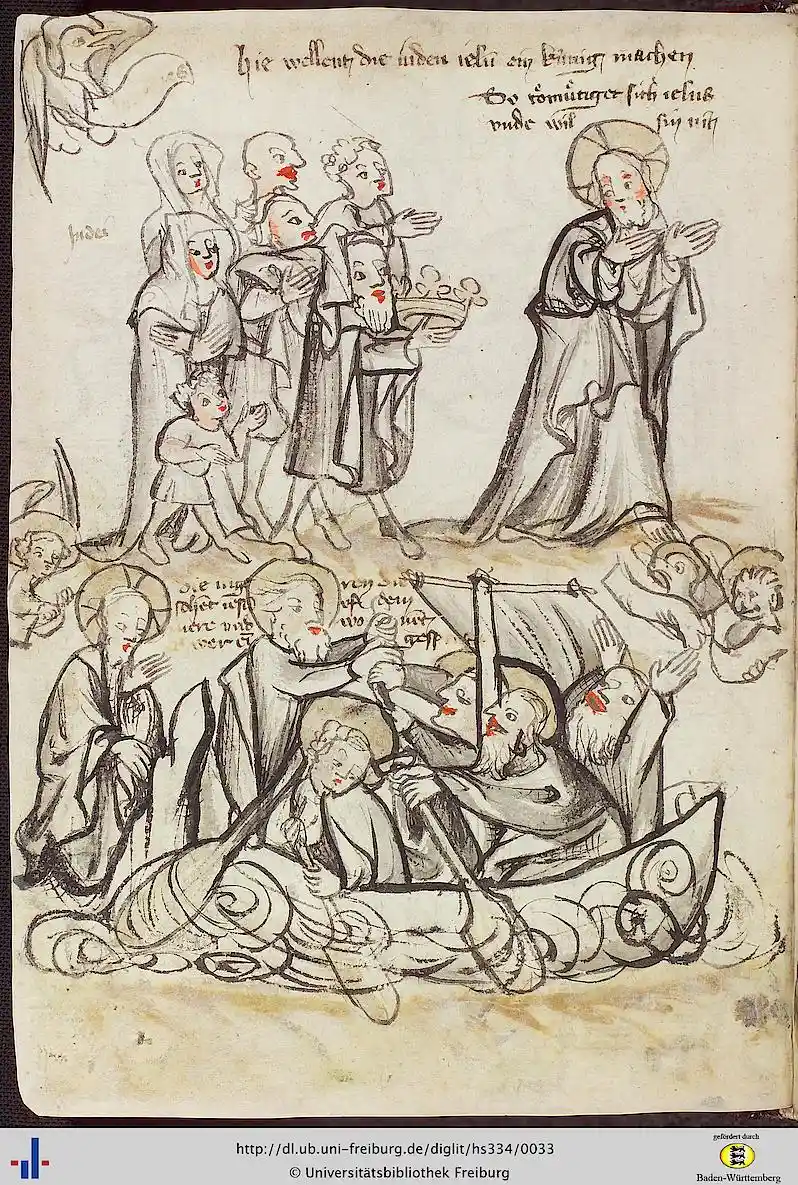 hie wellent die iuden iesu ein kunig machen
So tomůtiget sich iesus
vnde wil sin nit
iuden
die iung
schet iesu
uf dem
http://dl.ub.uni-freiburg.de/diglit/hs334/0033
© Universitätsbibliothek Freiburg
gefördert durch
Baden-Württemberg